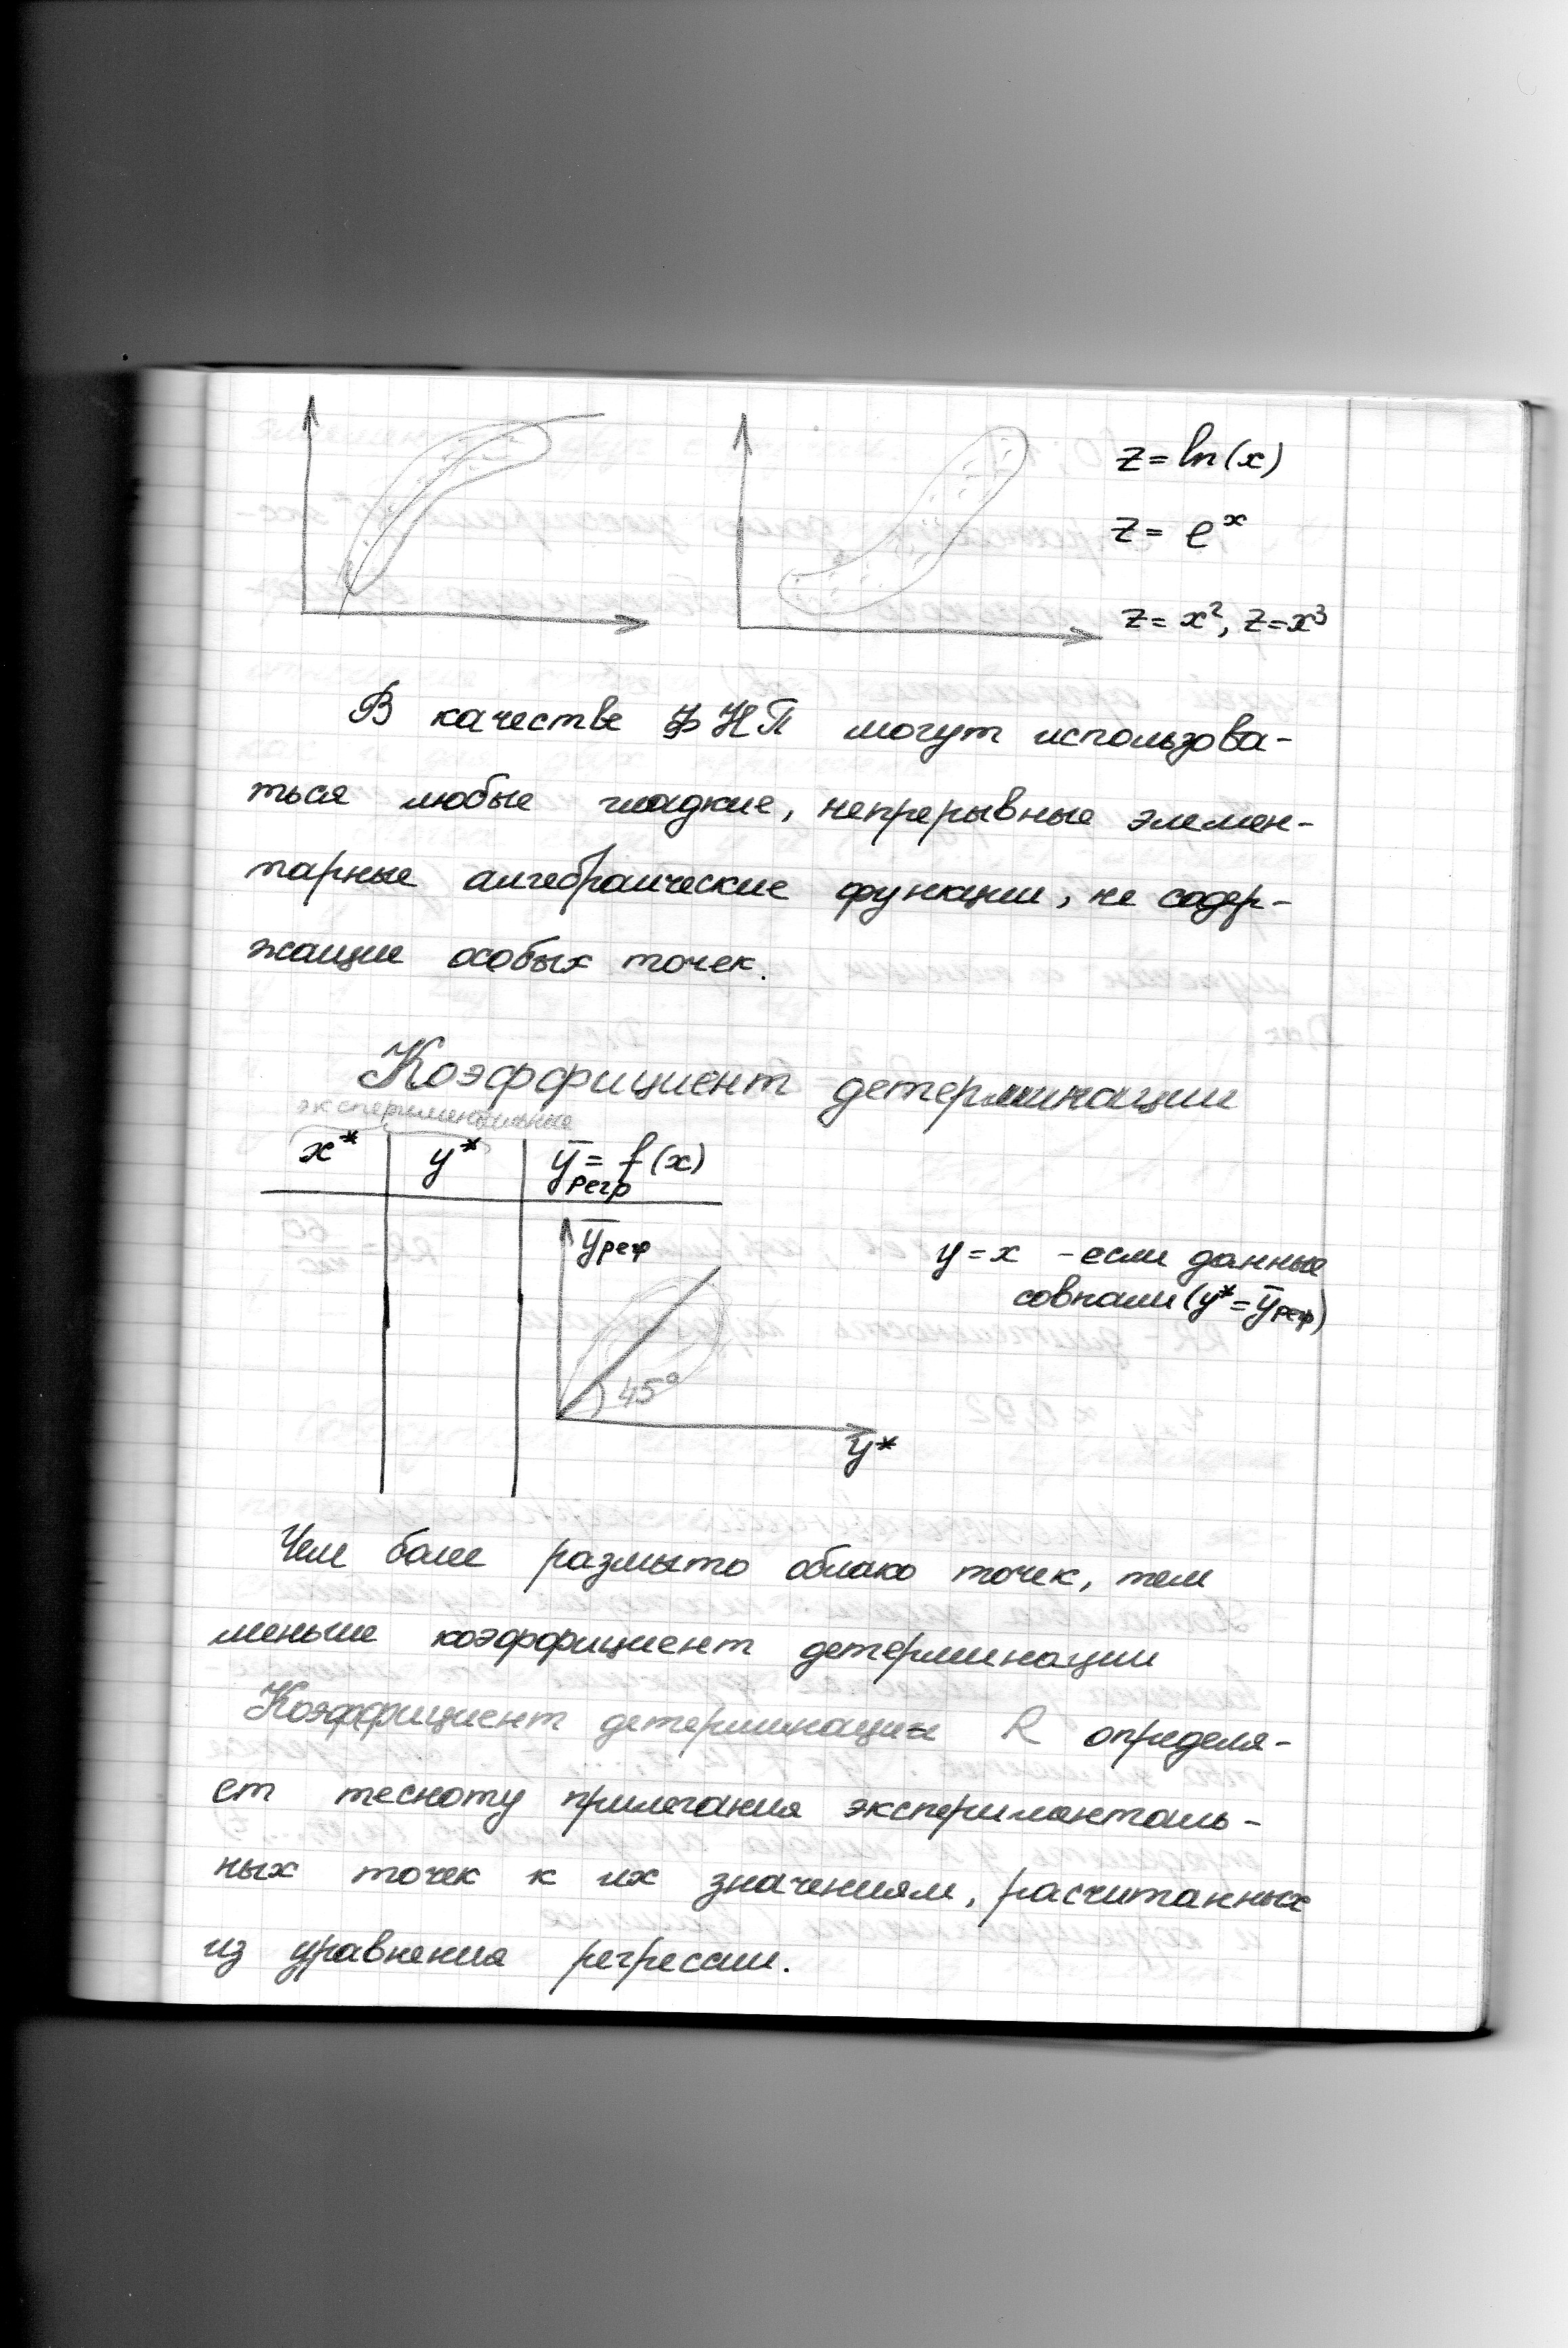 z = ln(x)
z = e^x
z = x², z = x³
В качестве ФНП могут использова-
ться любые гладкие, непрерывные элемен-
тарные алгебраические функции, не содер-
жащие особых точек.
Коэффициент детерминации
экспериментальные
x* y* ȳрегр = f(x)
ȳрег
y = x - если данные
совпали (y* = ȳрег)
45°
y*
Чем более размыто облако точек, тем
меньше коэффициент детерминации
Коэффициент детерминации R определя-
ет тесноту прилегания эксперименталь-
ных точек к их значениям, расчитанных
из уравнения регрессии.